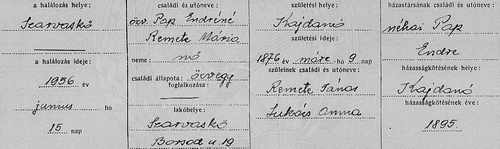 a halálozás helye:
Szarvaskő
a halálozás ideje:
1956 év
junius hó
15 nap
családi és utóneve:
özv. Pap Endréné
Remete Mária
neme: nő
családi állapota: özvegy
foglalkozása:
lakóhelye:
Szarvaskő
Borsod u 19
születési helye:
Kajdanó
születési ideje:
1876 év márc hó 9 nap
szüleinek családi és utóneve:
Remete János
Lukács Anna
házastársának családi és utóneve:
néhai Pap
Endre
házasságkötésének helye:
Kajdanó
házasságkötésének éve:
1895.